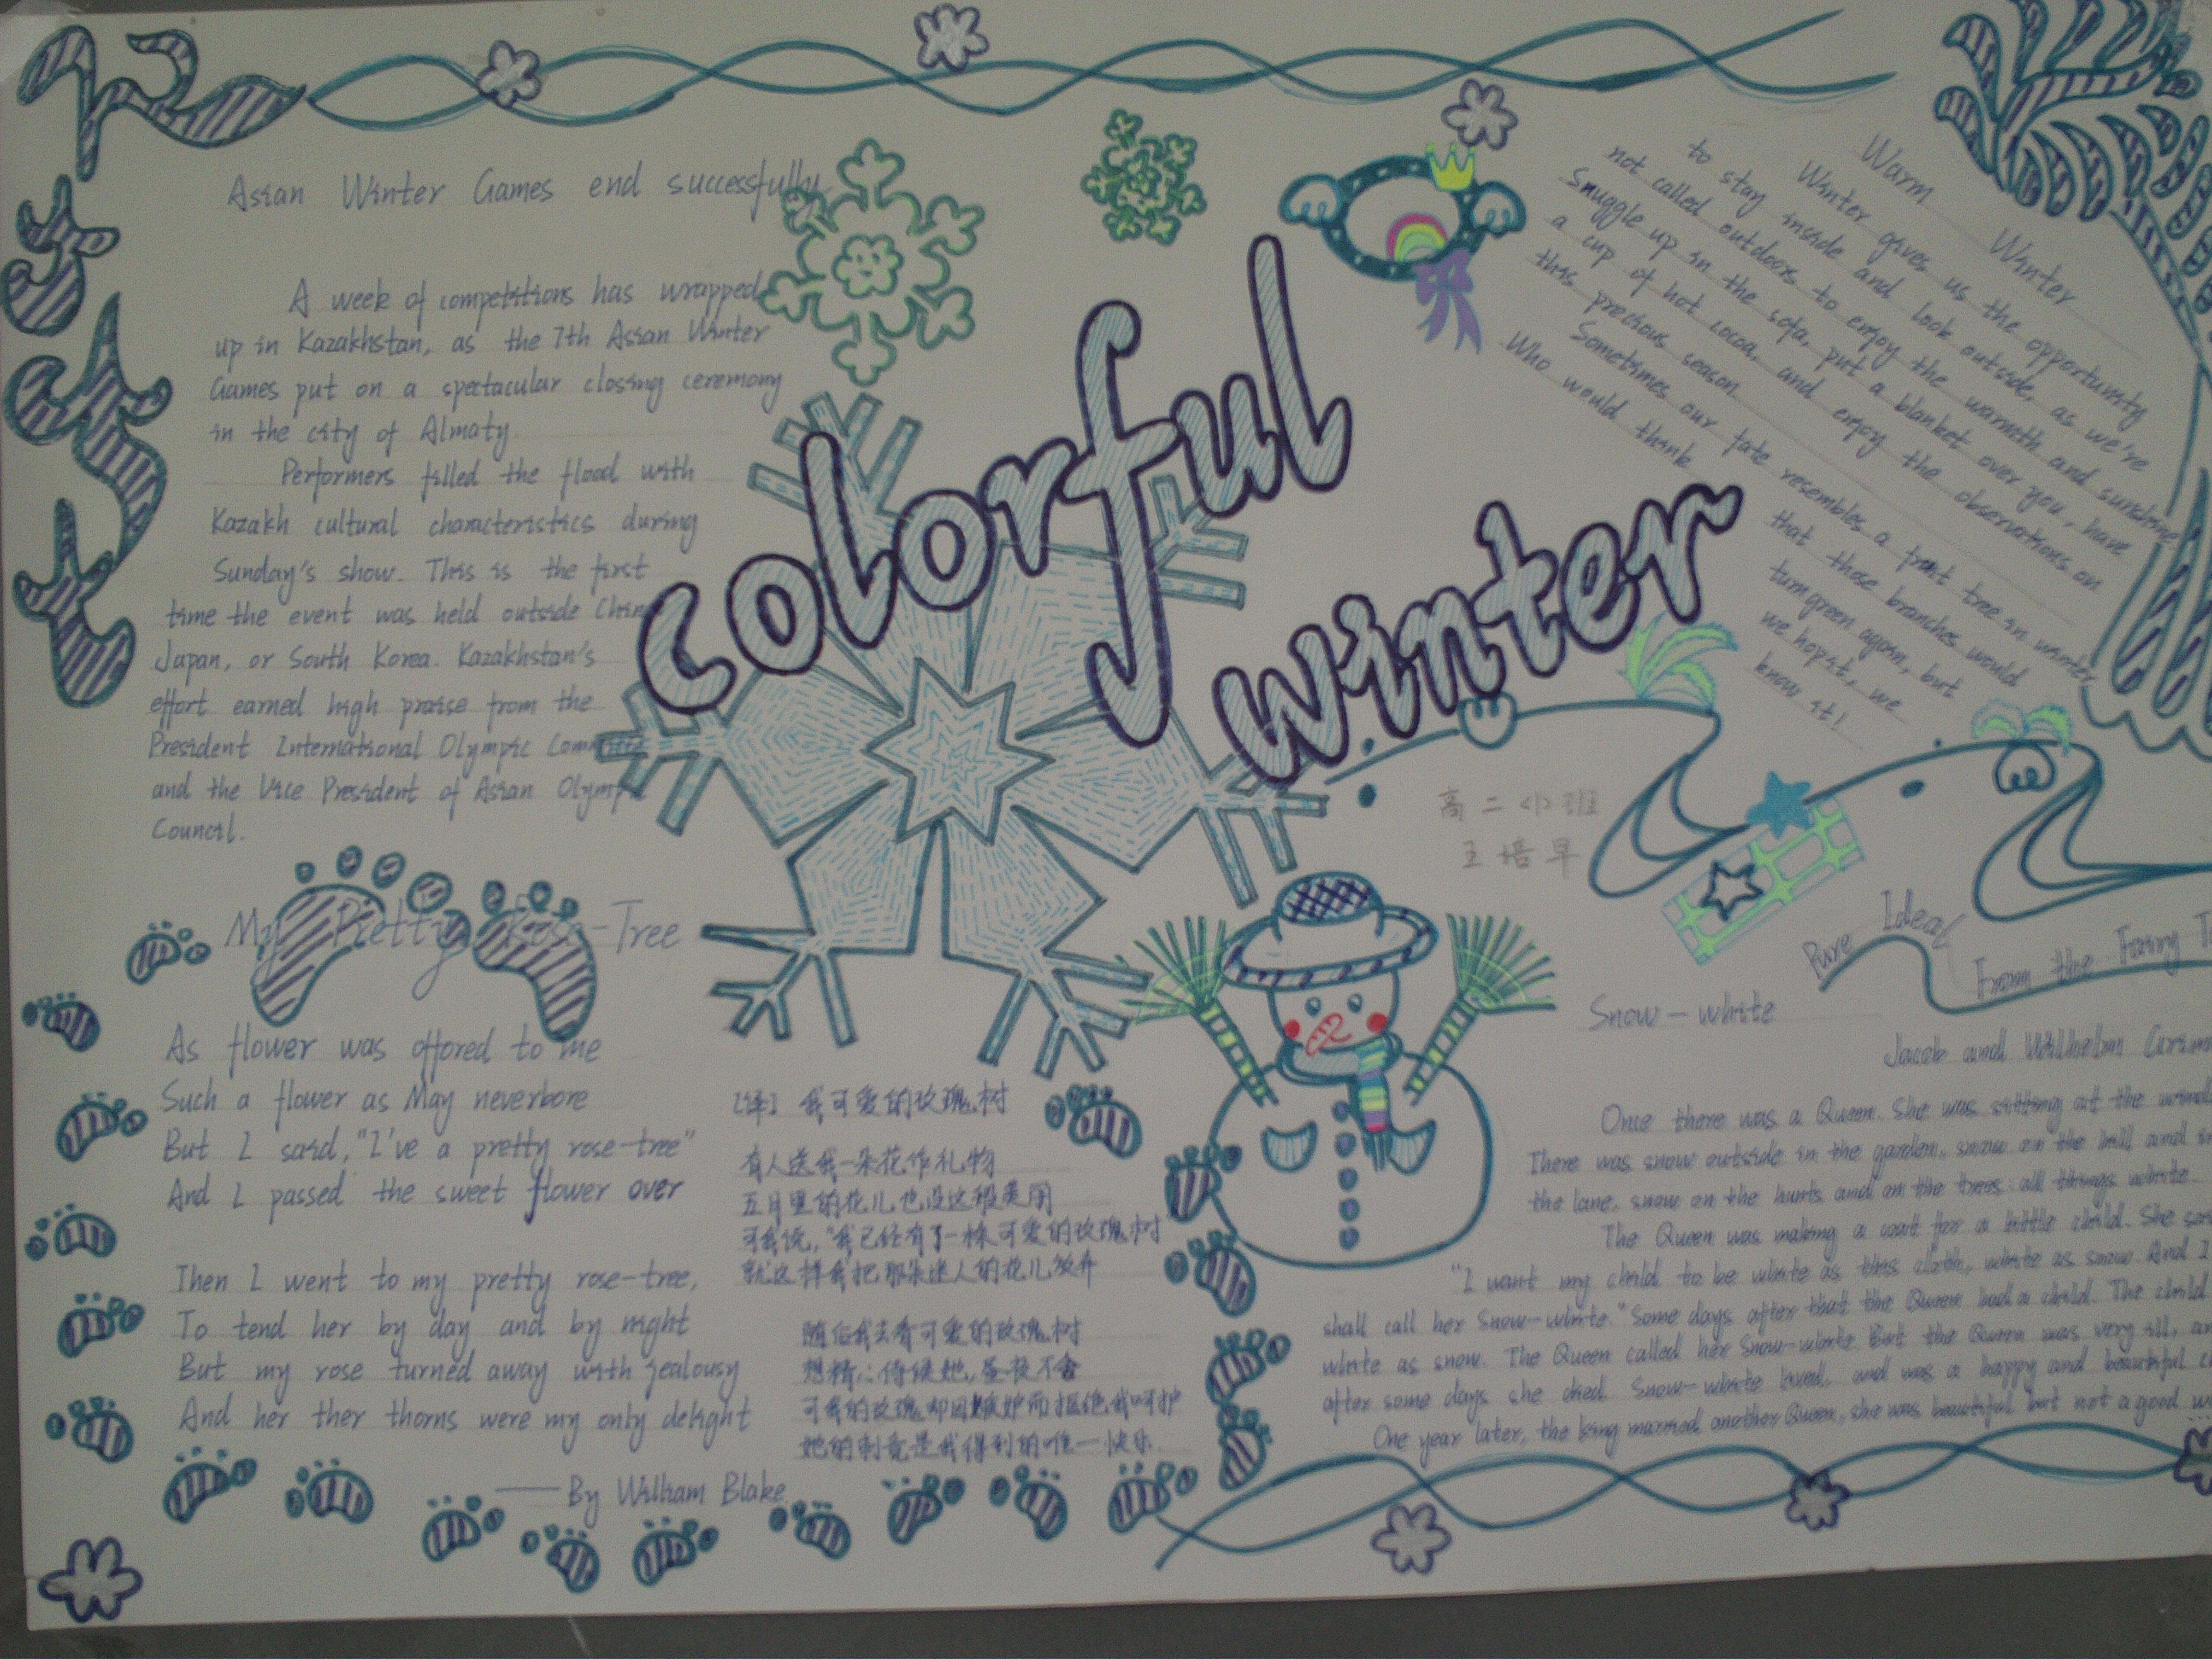 Asian Winter Games end successfully
A week of competitions has wrapped
up in Kazakhstan, as the 7th Asian Winter
Games put on a spectacular closing ceremony
in the city of Almaty.
Performers filled the flood with
Kazakh cultural characteristics during
Sunday's show. This is the first
time the event was held outside Chin
Japan, or South Korea. Kazakhstan's
effort earned high praise from the
President International Olympic Committee
and the Vice President of Asian Olympic
Council.
colorful
winter
Warm Winter
Winter gives us the opportunity
to stay inside and look outside, as we're
not called outdoors to enjoy the warmth and sunshine
Snuggle up in the sofa, put a blanket over you, have
a cup of hot cocoa, and enjoy the observations on
this precious season
Sometimes our fate resembles a fruit tree in winter
Who would think that those branches would
turn green again, but
we hopst, we
know it!
高二小班
王培早
My Pretty Rose-Tree
As flower was offored to me
Such a flower as May neverbore
But I said, "I've a pretty rose-tree"
And I passed the sweet flower over
Then I went to my pretty rose-tree,
To tend her by day and by night
But my rose turned away with jealousy
And her ther thorns were my only delight
——By William Blake
[译] 我可爱的玫瑰树
有人送我一朵花作礼物
五月里的花儿也没这般美丽
可我说，"我已经有了一株可爱的玫瑰树"
就这样我把那朵迷人的花儿放弃
随后我去看可爱的玫瑰树
想精心侍候她，昼夜不舍
可我的玫瑰却因嫉妒而拒绝我呵护
她的刺竟是我得到的唯一快乐
Pure Ideal
From the Fairy
Snow-white
Jacob and Wilhelm Grimm
Once there was a Queen. She was sitting at the wind
There was snow outside in the garden, snow on the hill and in
the lane, snow on the hunts and on the trees: all things white.
The Queen was making a coat for a little child. She said
"I want my child to be white as this cloth, white as snow. And I
shall call her Snow-white." Some days after that the Queen had a child. The child
white as snow. The Queen called her Snow-white. But the Queen was very ill, an
after some days she died. Snow-white lived, and was a happy and beautiful c
One year later, the king married another Queen, she was beautiful but not a good w